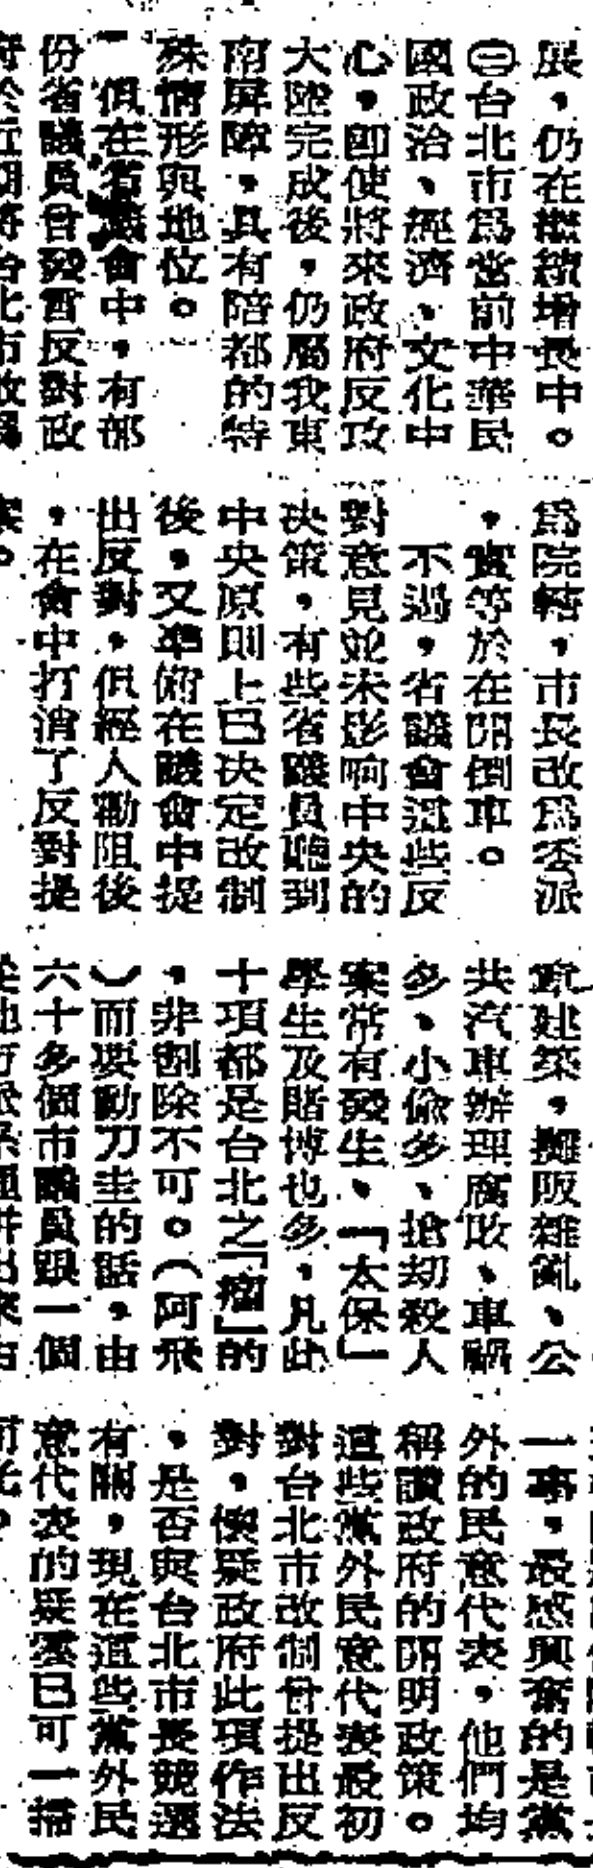 展，仍在繼續增長中。
㊂台北市爲當前中華民
國政治、經濟、文化中
心，卽使將來政府反攻
大陸完成後，仍屬我東
南屏障，具有陪都的特
殊情形與地位。
但在省議會中，有部
份省議員曾發言反對政
府於近期將台北市改爲
爲院轄，市長改爲委派
，實等於在開倒車。
不過，省議會這些反
對意見並未影响中央的
决策，有些省議員聽到
中央原則上已决定改制
後，又準備在議會中提
出反對，但經人勸阻後
，在會中打消了反對提
案。
章建築，攤販雜亂、公
共汽車辦理腐敗、車禍
多、小偸多、搶刧殺人
案常有發生、「太保」
學生及賭博也多，凡此
十項都是台北之「瘤」的
，非割除不可。（阿飛
）而要動刀圭的話，由
六十多個市議員跟一個
一事，最感興奮的是黨
外的民意代表，他們均
稱讚政府的開明政策。
這些黨外民意代表最初
對台北市改制曾提出反
對，懷疑政府此項作法
，是否與台北市長競選
有關，現在這些黨外民
意代表的疑雲已可一掃
而光。